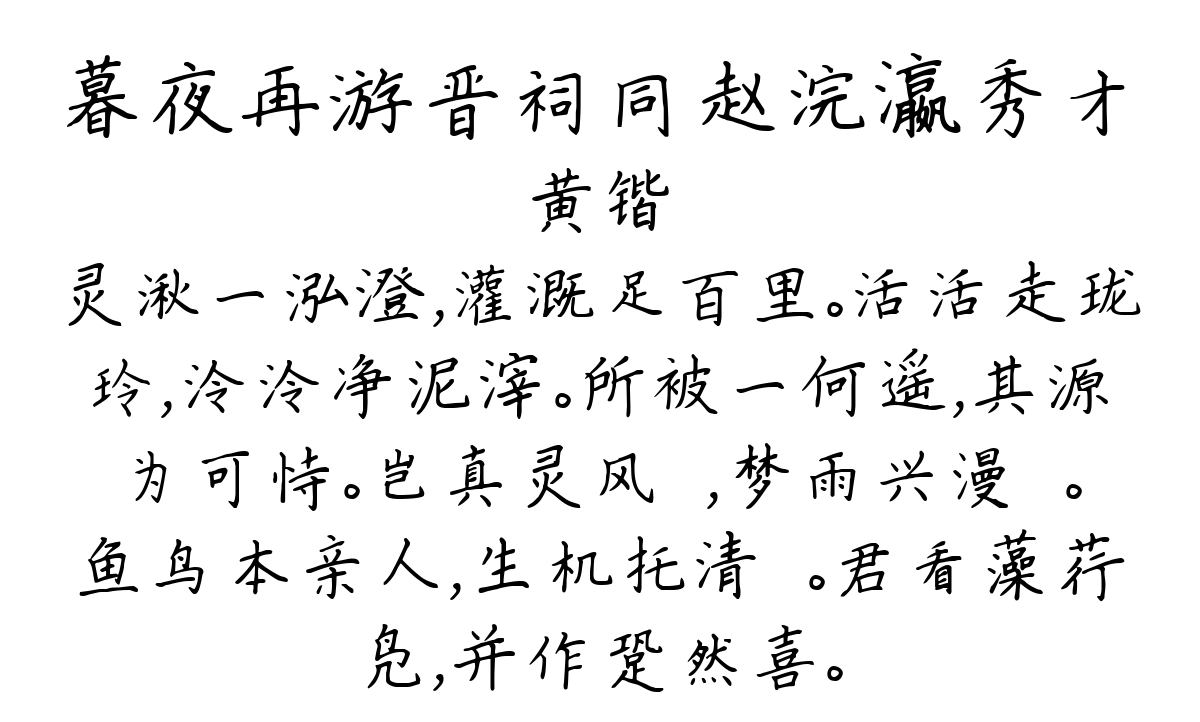 暮夜再游晋祠同赵浣瀛秀才
黄锴
灵湫一泓澄,灌溉足百里。活活走珑
玲,泠泠净泥滓。所被一何遥,其源
为可恃。岂真灵风 ,梦雨兴漫 。
鱼鸟本亲人,生机托清 。君看藻荇
凫,并作跫然喜。